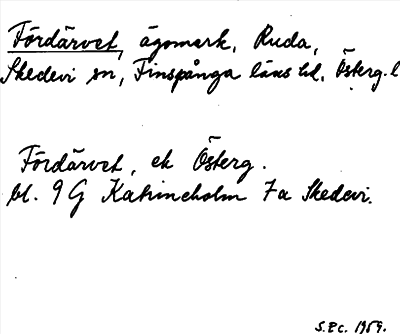 Fördärvet, ägomark, Ruda,
Skedevi sn, Finspånga läns hd. Österg. l
Fördärvet, ek Österg.
bl. 9 G Katrineholm 7a Skedevi.
S.Ec. 1959.